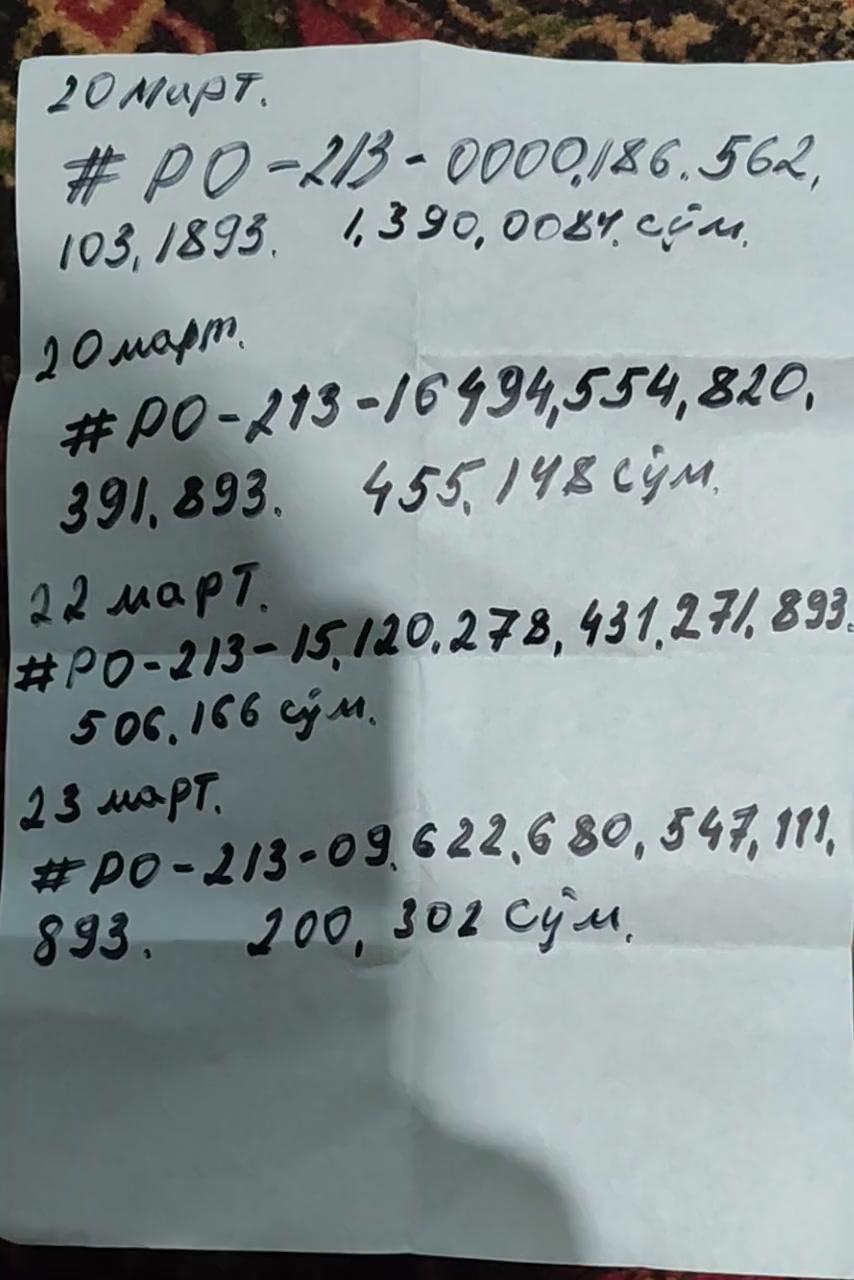 20 март.
# РО-213-0000,186.562,
103,1893. 1,390,0084. сўм.
20 март.
#РО-213-16494,554,820,
391,893. 455,148 сўм.
22 март.
#РО-213-15,120.278,431,271,893.
506.166 сўм.
23 март.
#РО-213-09.622,680,547,111,
893. 200,302 сўм.